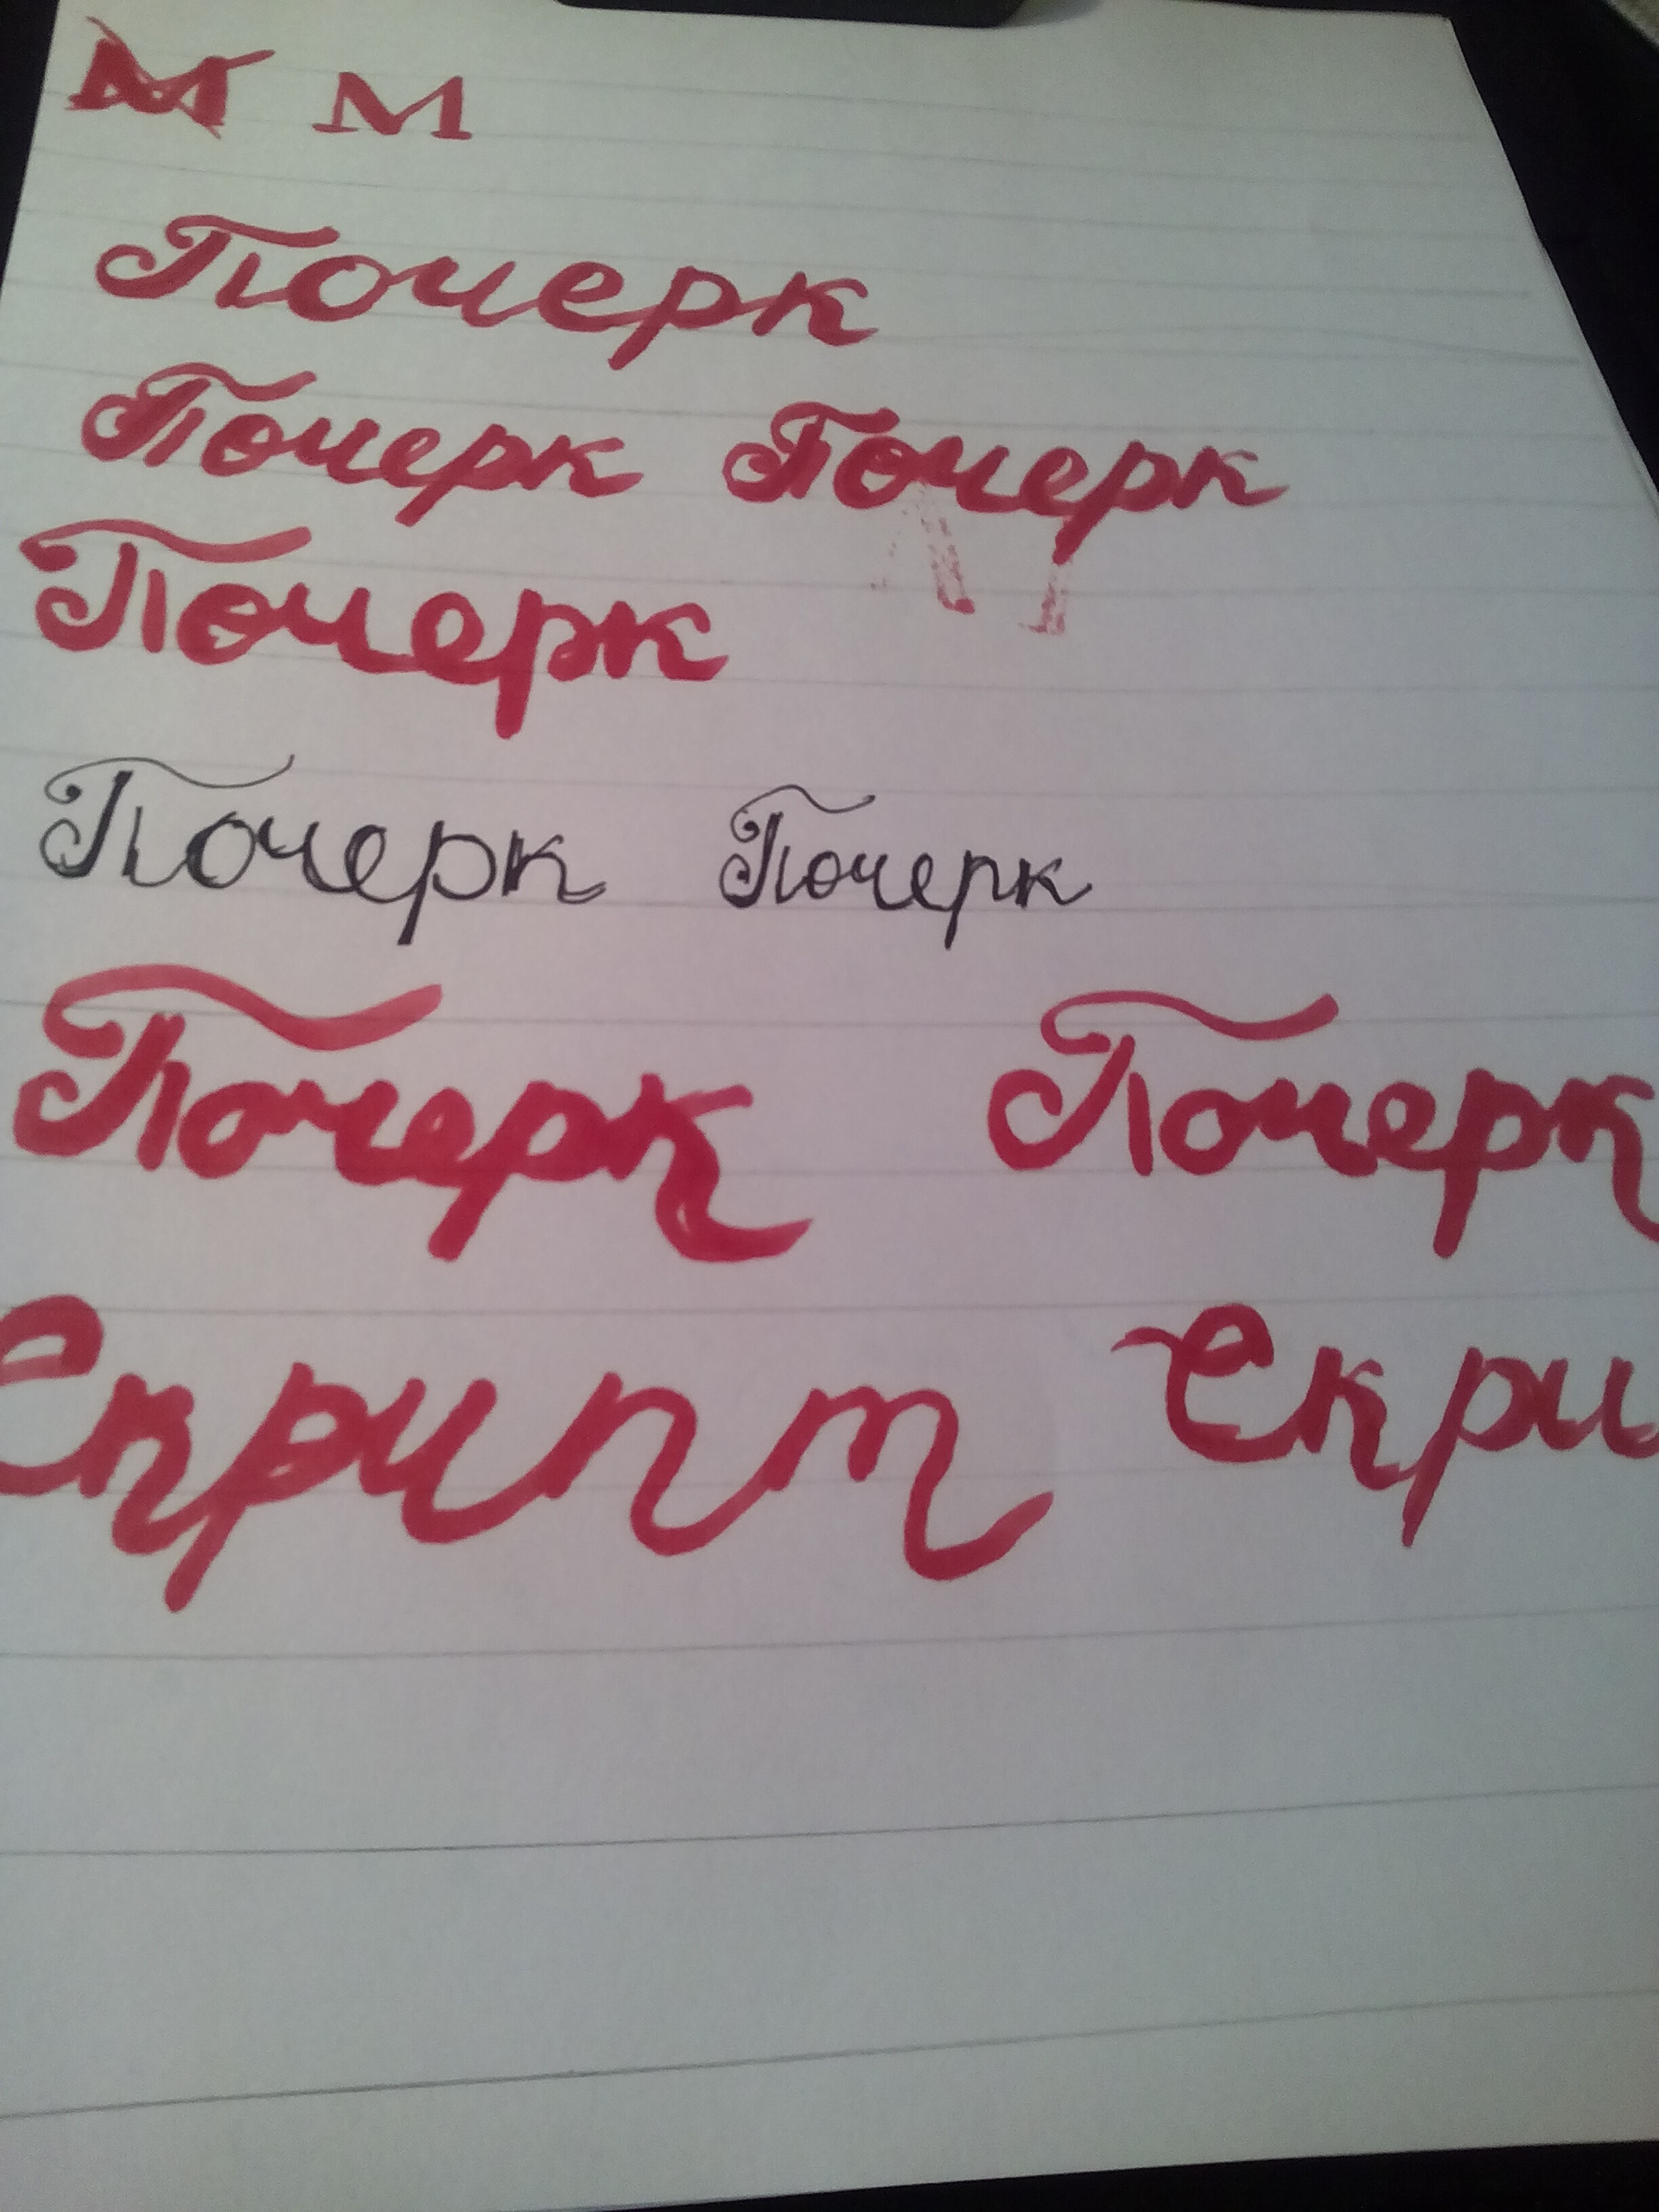 М М
Почерк
Почерк Почерк
Почерк
Почерк Почерк
Почерк Почерк
Скрипт Скри